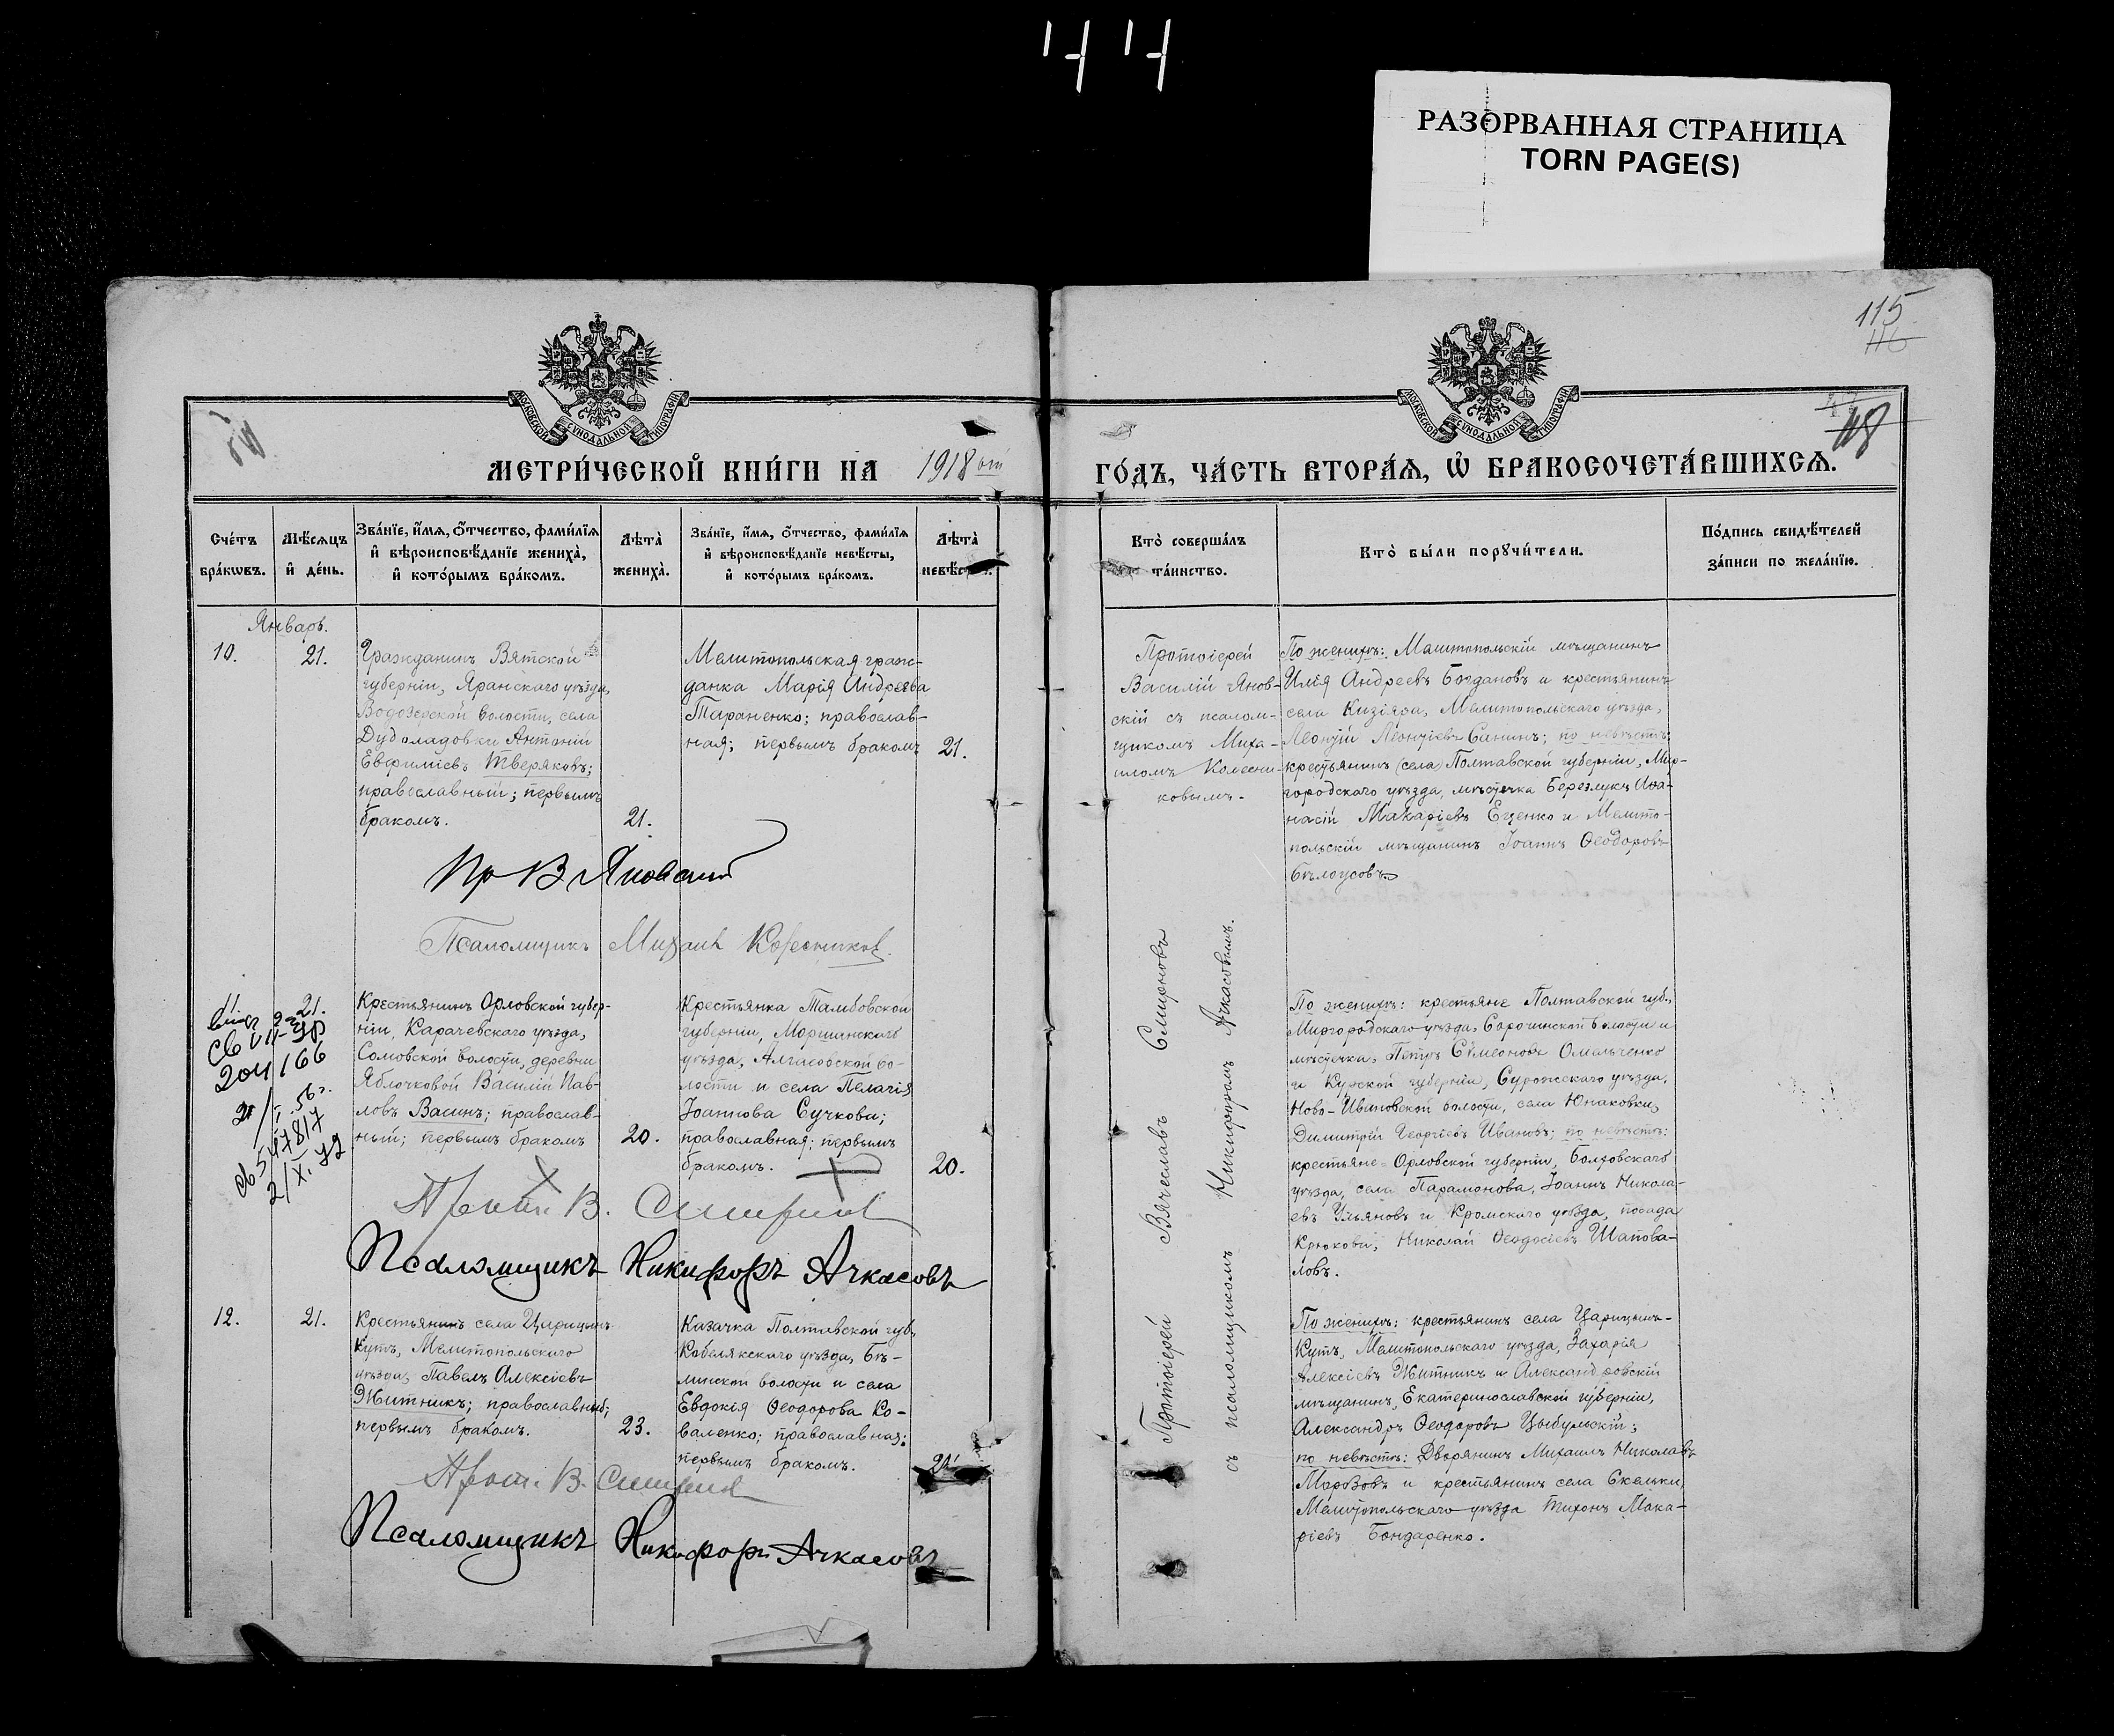 РАЗОРВАННАЯ СТРАНИЦА
TORN PAGE(S)
115
116
118
МОСКОВСКОЙ СУНОДАЛЬНОЙ ТИПОГРАФІИ
МОСКОВСКОЙ СУНОДАЛЬНОЙ ТИПОГРАФІИ
МЕТРИ́ЧЕСКОЙ КНИ́ГИ НА 1918 ый ГО́ДЪ, ЧА́СТЬ ВТОРА́Ѧ, Ѡ҆ БРАКОСОЧЕТА́ВШИХСѦ.
Сче́тъ
бра́кѡвъ.
Мѣ́сѧцъ
и҆ де́нь.
Зва́нїе, и҆́мѧ, ѻ҆́тчество, фами́лїѧ
и҆ вѣроисповѣ́данїе жениха̀,
и҆ кото́рымъ бра́комъ.
Лѣ́та̀
жениха̀.
Зва́нїе, и҆́мѧ, ѻ҆́тчество, фами́лїѧ
и҆ вѣроисповѣ́данїе невѣ́сты,
и҆ кото́рымъ бра́комъ.
Лѣ́та̀
невѣ́с
Кто̀ соверша́лъ
та́инство.
Кто̀ бы́ли порꙋчи́тели.
По́дпись свидѣ́телей
за́писи по жела́нїю.
Январь.
10.
21.
Гражданинъ Вятской
губерніи, Яранскаго уѣзда,
Водозерской волости, села
Дудоладовки Антоній
Евфиміевъ Тверяковъ;
православный; первымъ
бракомъ.
21.
Мелитопольская граж-
данка Марія Андреева
Тараненко; православ-
ная; первымъ бракомъ
21.
Протоіерей
Василій Янов-
скій съ псалом-
щикомъ Миха-
иломъ Колесни-
ковымъ.
По женихѣ: Мелитопольскій мѣщанинъ
Илія Андреевъ Богдановъ и крестьянинъ
села Кизіяра, Мелитопольскаго уѣзда,
Леонтій Леонтіевъ Санинъ; по невѣстѣ:
крестьянинъ (села) Полтавской губерніи, Мир-
городскаго уѣзда, мѣстечка Березлукъ Аѳа-
насій Макаріевъ Еценко и Мелито-
польскій мѣщанинъ Іоаннъ Ѳеодоровъ
Бѣлоусовъ.
Пр В Яновскій
Псаломщикъ Михаил Колесников.
11.
21.
204166
547817
Крестьянинъ Орловской губер-
ніи, Карачевскаго уѣзда,
Сомовской волости, деревни
Яблочковой Василій Пав-
ловъ Васинъ; православ-
ный; первымъ бракомъ
20.
Крестьянка Тамбовской
губерніи, Моршанскаго
уѣзда, Алгасовской во-
лости и села Пелагія
Іоаннова Сучкова;
православная; первымъ
бракомъ.
20.
Протоіерей Вячеславъ Смирновъ
съ псаломщикомъ Никифоромъ Ачкасовымъ.
По женихѣ: крестьяне Полтавской губ.,
Миргородскаго уѣзда, Сорочинской волости и
мѣстечка, Петръ Симеоновъ Омельченко
и Курской губерніи, Суражскаго уѣзда,
Ново-Ивановской волости, села Юнаковки,
Димитрій Георгіевъ Ивановъ; по невѣстѣ:
крестьяне Орловской губерніи, Болховскаго
уѣзда, села Парамонова, Іоаннъ Никола-
евъ Ульяновъ и Кромскаго уѣзда, посада
Крюкова, Николай Ѳеодосіевъ Шапова-
ловъ.
Прот. В. Смирнов
Псаломщикъ Никифоръ Ачкасовъ
12.
21.
Крестьянинъ села Царицынъ
Кутъ, Мелитопольскаго
уѣзда, Павелъ Алексіевъ
Житникъ; православный;
первымъ бракомъ.
23.
Казачка Полтавской губ.,
Кобелякскаго уѣзда, Бѣ-
ликской волости и села
Евдокія Ѳеодорова Ко-
валенко; православная;
первымъ бракомъ.
21.
По женихѣ: крестьянинъ села Царицынъ-
Кутъ, Мелитопольскаго уѣзда, Захарія
Алексіевъ Житникъ и Александровскій
мѣщанинъ, Екатеринославской губерніи,
Александръ Ѳеодоровъ Цыбульскій;
по невѣстѣ: Дворянинъ Михаилъ Николаевъ
Морозовъ и крестьянинъ села Скельки,
Мелитопольскаго уѣзда Тихонъ Мака-
ріевъ Бондаренко.
Прот. В. Смирнов
Псаломщикъ Никифоръ Ачкасовъ